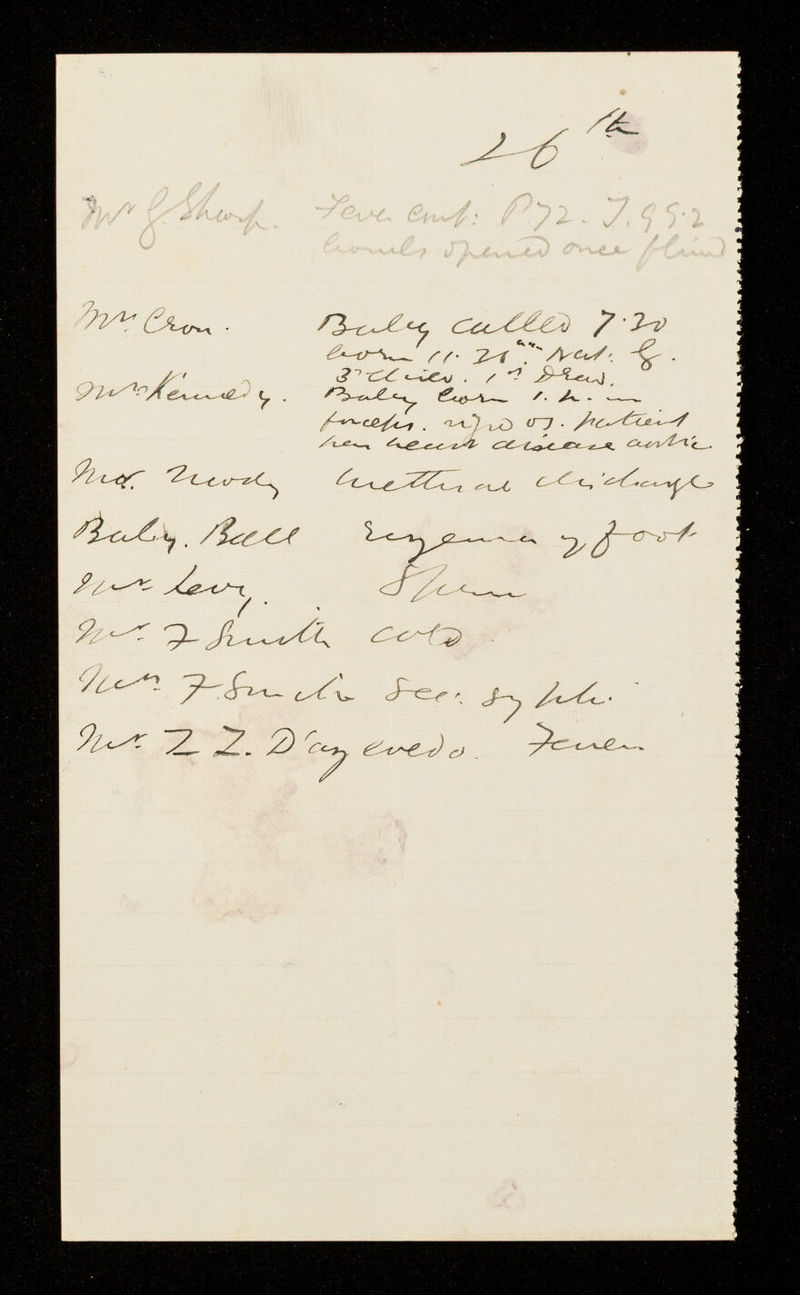 26th
Mr G. Sharp. Fever cont: P 72. T. 99.2
bowels opened once
Mrs Cron. Baby called 7.20
born 11.20 am. Nat: G.
3rd child. 1st Dead.
Mrs Kennedy. Baby born
forceps. rigid os. patient
has heart disease aortic
Mr. Moody urethral discharge
Baby. Ball Eczema of foot
Mr Levy.
Mr. F Smith cold
Mrs. F Smith Sec: syphi.
Mr. Z Z. D'azevedo. Fever